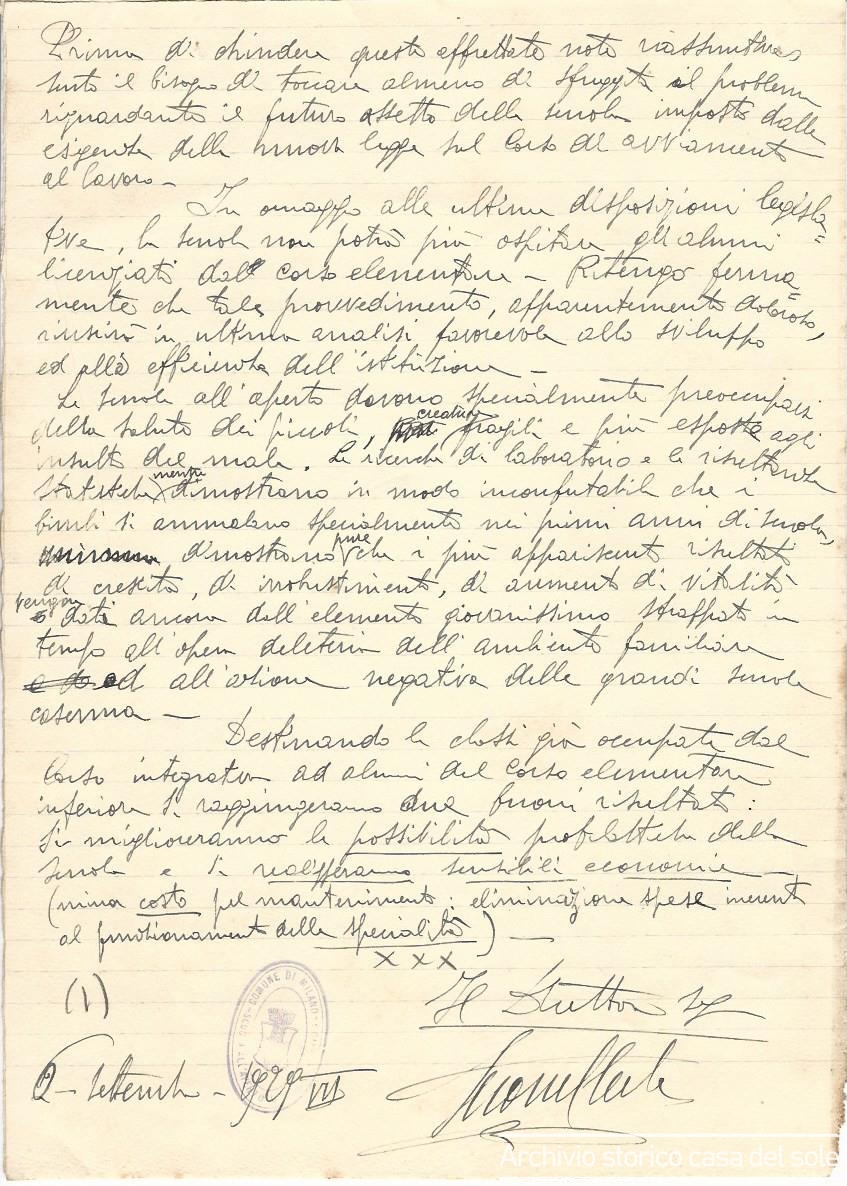 Prima di chindere queste affrettate note riassuntive
sento il bisogno di toccare almeno di sfuggita il problema
riguardante il futuro assetto della scuola imposto dalle
esigenze della nuova legge sul Corso di avviamento
al lavoro —
In omaggio alle ultime disposizioni legisla=
tive, la scuola non potrà più ospitare gli alunni
licenziati dal corso elementare — Ritengo ferma=
mente che tale provvedimento, apparentemente doloroso,
riuscirà in ultima analisi favorevole allo sviluppo
ed alla efficienza dell'istituzione —
Le scuole all'aperto devono specialmente preoccuparsi
della salute dei piccoli, creature fragili e più esposte agli
insulti del male. Le ricerche di laboratorio e le risultanze
statistiche mentre dimostrano in modo inconfutabile che i
bimbi si ammalano specialmente nei primi anni di scuola,
dimostrano pure che i più appariscenti risultati
di crescita, di irrobustimento, di aumento di vitalità
vengon dati ancora dall'elemento giovanissimo strappato in
tempo all'opera deleteria dell'ambiente familiare
ed all'azione negativa delle grandi scuole
caserma —
Destinando le classi già occupate dal
Corso integrativo ad alunni del corso elementare
inferiore si raggiungeranno due buoni risultati:
si miglioreranno le possibilità profilattiche della
scuola e si realizzeranno sensibili economie —
(minor costo pel mantenimento: eliminazione spese inerenti
al funzionamento delle specialità) —
x x x
(1)
COMUNE DI MILANO
Il Direttore
2 — Settembre — 1929 VII
Archivio storico casa del sole